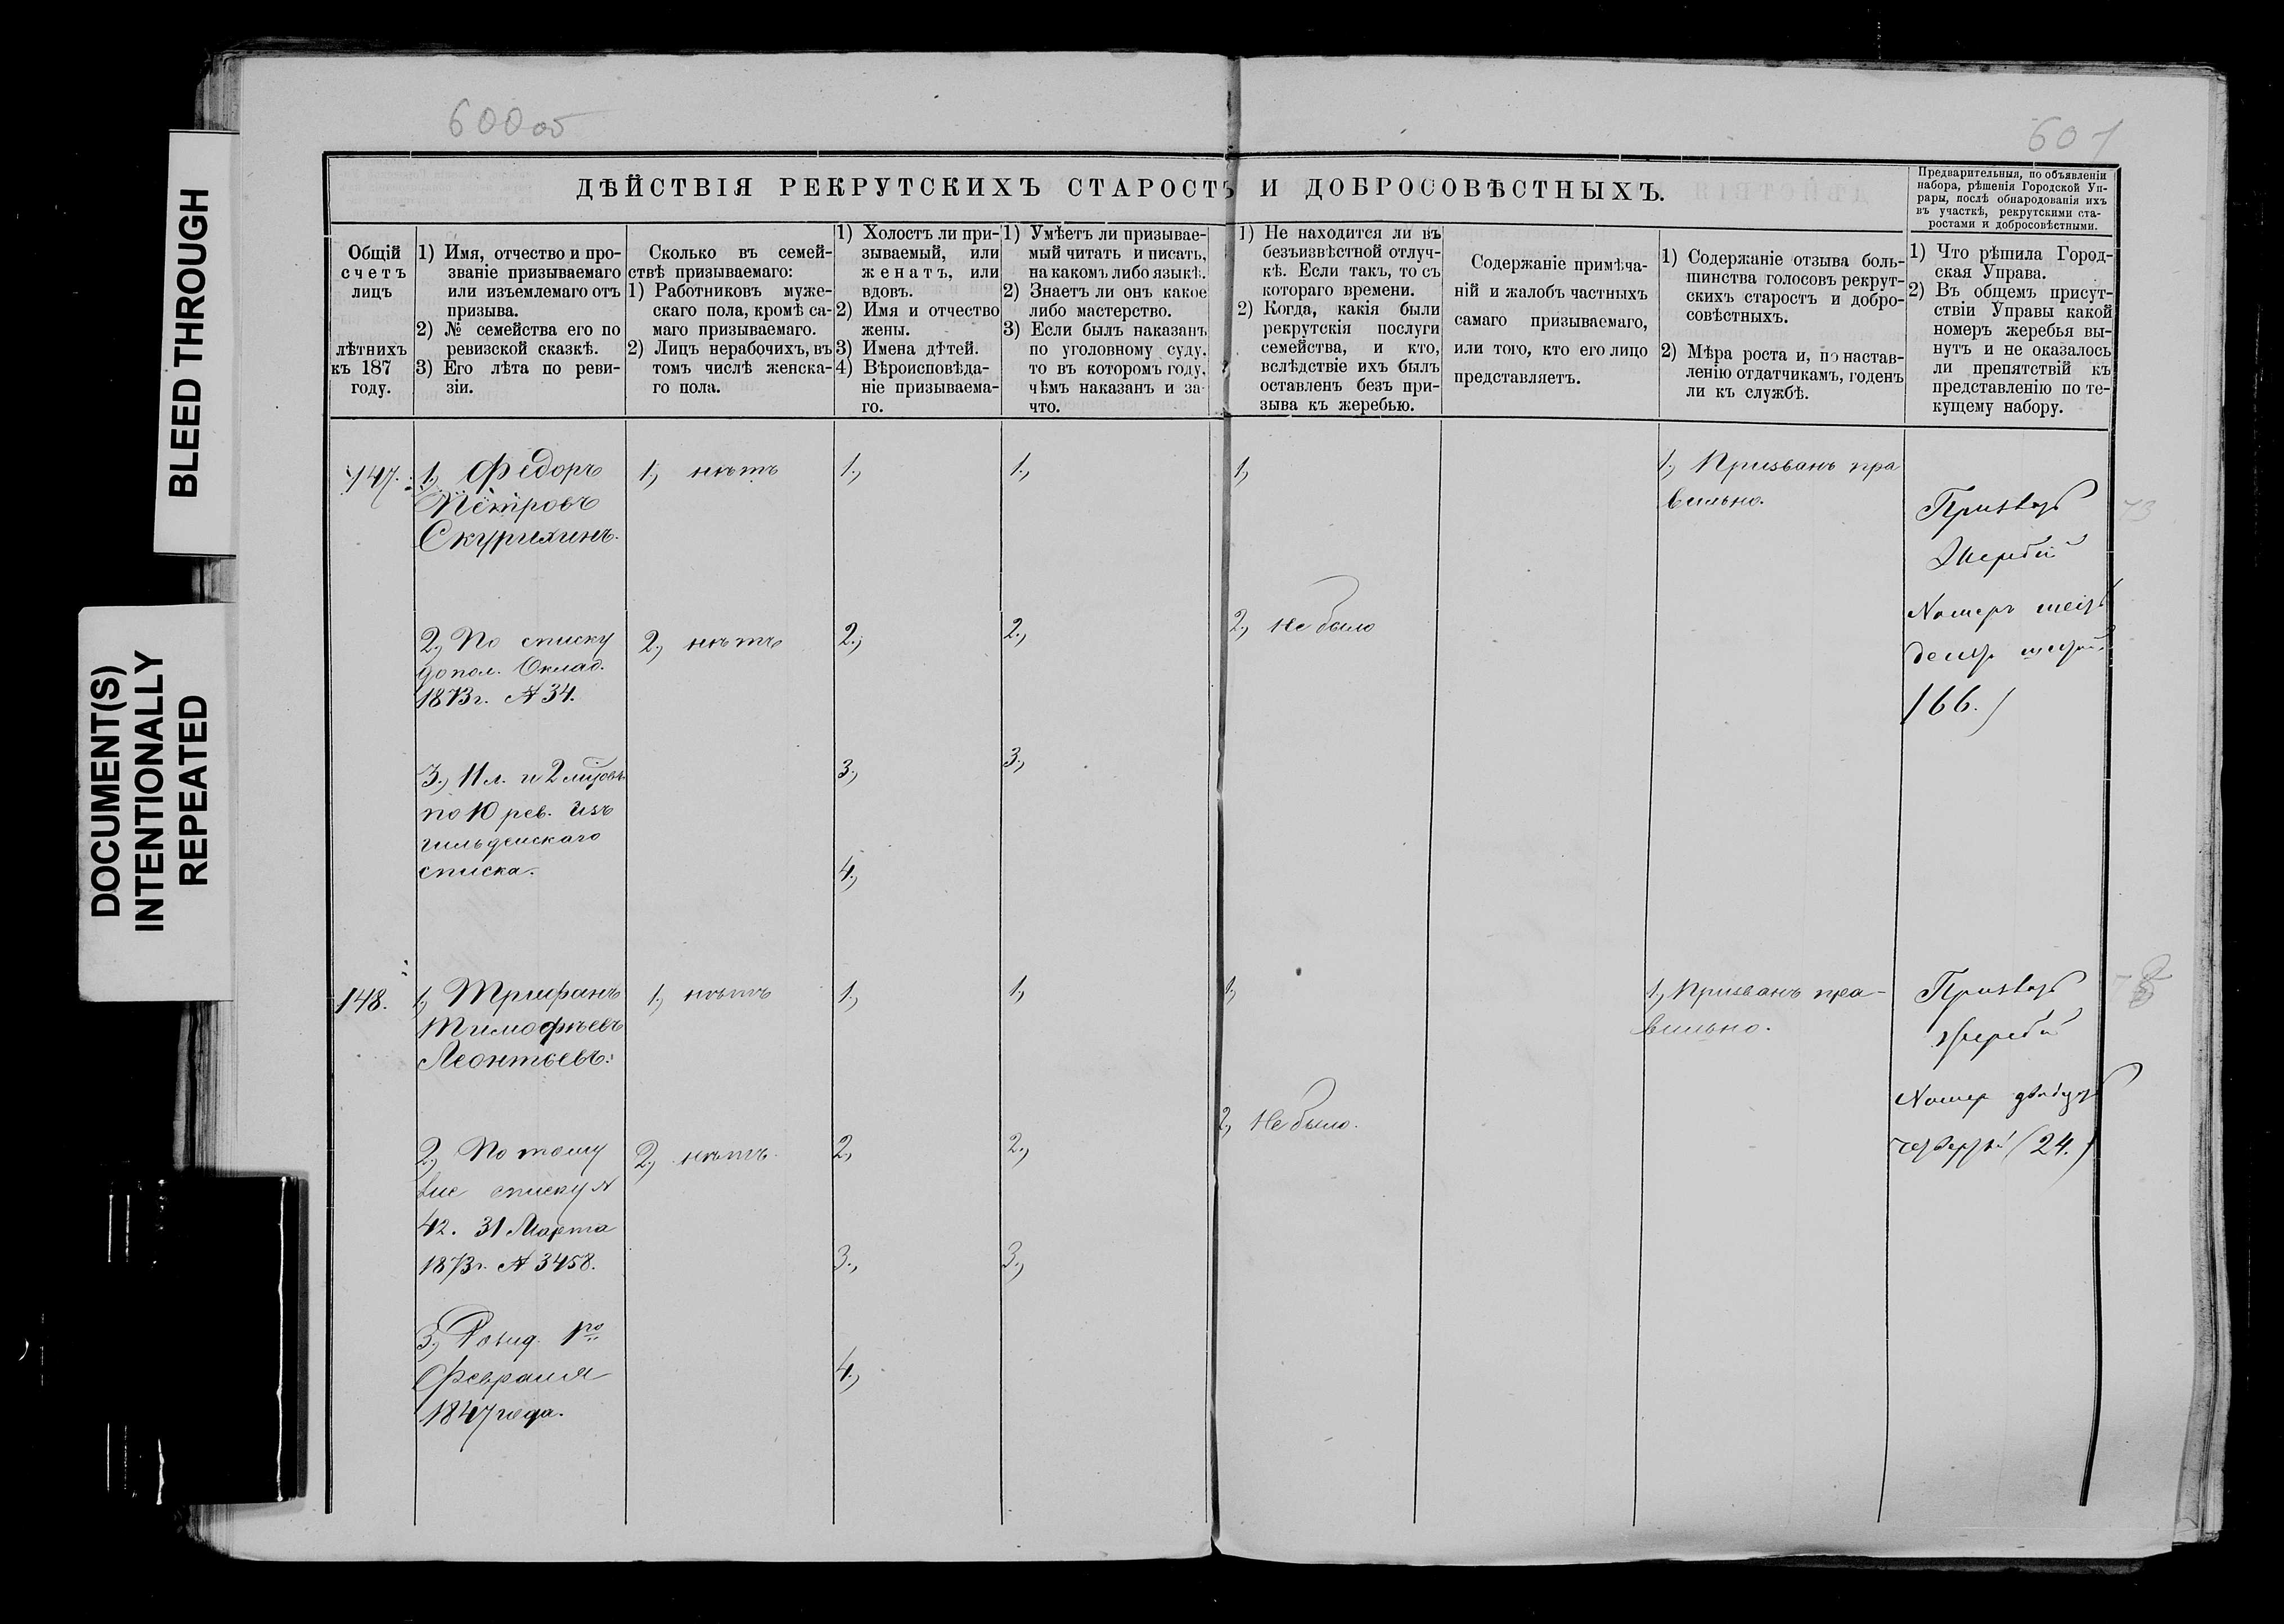 600 об
601
BLEED THROUGH
DOCUMENT(S)
INTENTIONALLY
REPEATED
ДѢЙСТВІЯ РЕКРУТСКИХЪ СТАРОСТЪ И ДОБРОСОВѢСТНЫХЪ.
Предварительныя, по объявленіи
набора, рѣшенія Городской Уп-
рары, послѣ обнародованія ихъ
въ участкѣ, рекрутскими ста-
ростами и добросовѣстными.
Общій
счетъ
лицъ
лѣтнихъ
къ 187
году.
1) Имя, отчество и про-
званіе призываемаго
или изъемлемаго отъ
призыва.
2) № семейства его по
ревизской сказкѣ.
3) Его лѣта по реви-
зіи.
Сколько въ семей-
ствѣ призываемаго:
1) Работниковъ муже-
скаго пола, кромѣ са-
маго призываемаго.
2) Лицъ нерабочихъ, въ
томъ числѣ женска-
го пола.
1) Холостъ ли при-
зываемый, или
женатъ, или
вдовъ.
2) Имя и отчество
жены.
3) Имена дѣтей.
4) Вѣроисповѣда-
ніе призываема-
го.
1) Умѣетъ ли призывае-
мый читать и писать,
на какомъ либо языкѣ.
2) Знаетъ ли онъ какое
либо мастерство.
3) Если былъ наказанъ
по уголовному суду,
то въ которомъ году,
чѣмъ наказанъ и за-
что.
1) Не находится ли въ
безъизвѣстной отлуч-
кѣ. Если такъ, то съ
котораго времени.
2) Когда, какія были
рекрутскія послуги
семейства, и кто,
вслѣдствіе ихъ былъ
оставленъ безъ при-
зыва къ жеребью.
Содержаніе примѣча-
ній и жалобъ частныхъ
самаго призываемаго,
или того, кто его лицо
представляетъ.
1) Содержаніе отзыва боль-
шинства голосовъ рекрут-
скихъ старостъ и добро-
совѣстныхъ.
2) Мѣра роста и, по настав-
ленію отдатчикамъ, годенъ
ли къ службѣ.
1) Что рѣшила Город-
ская Управа.
2) Въ общемъ присут-
ствіи Управы какой
номеръ жеребья вы-
нутъ и не оказалось
ли препятствій къ
представленію по те-
кущему набору.
147.
1, Федоръ
Петровъ
Скурихинъ.
2, По списку
допол. Оклад.
1873г. № 34.
3, 11 л. и 2 мѣсов.
по 10 рев. изъ
гильдейскаго
списка.
1, нѣтъ
2, нѣтъ
1,
2,
3,
4,
1,
2,
3,
1,
2, Не было
1, Призванъ пра
вильно.
Призвать
Жребій
Номеръ
166.)
73
148.
1, Трифанъ
Тимофѣевъ
Леонтьевъ.
2, По тому
же списку №
42. 31 Марта
1873г. № 3458.
3, 1го
Февраля
1847 года.
1, нѣтъ
2, нѣтъ
1,
2,
3,
4,
1,
2,
3,
1,
2, Не было.
1, Призванъ пра-
вильно.
Призвать
жребій
Номер двадцать
четвертый (24.)